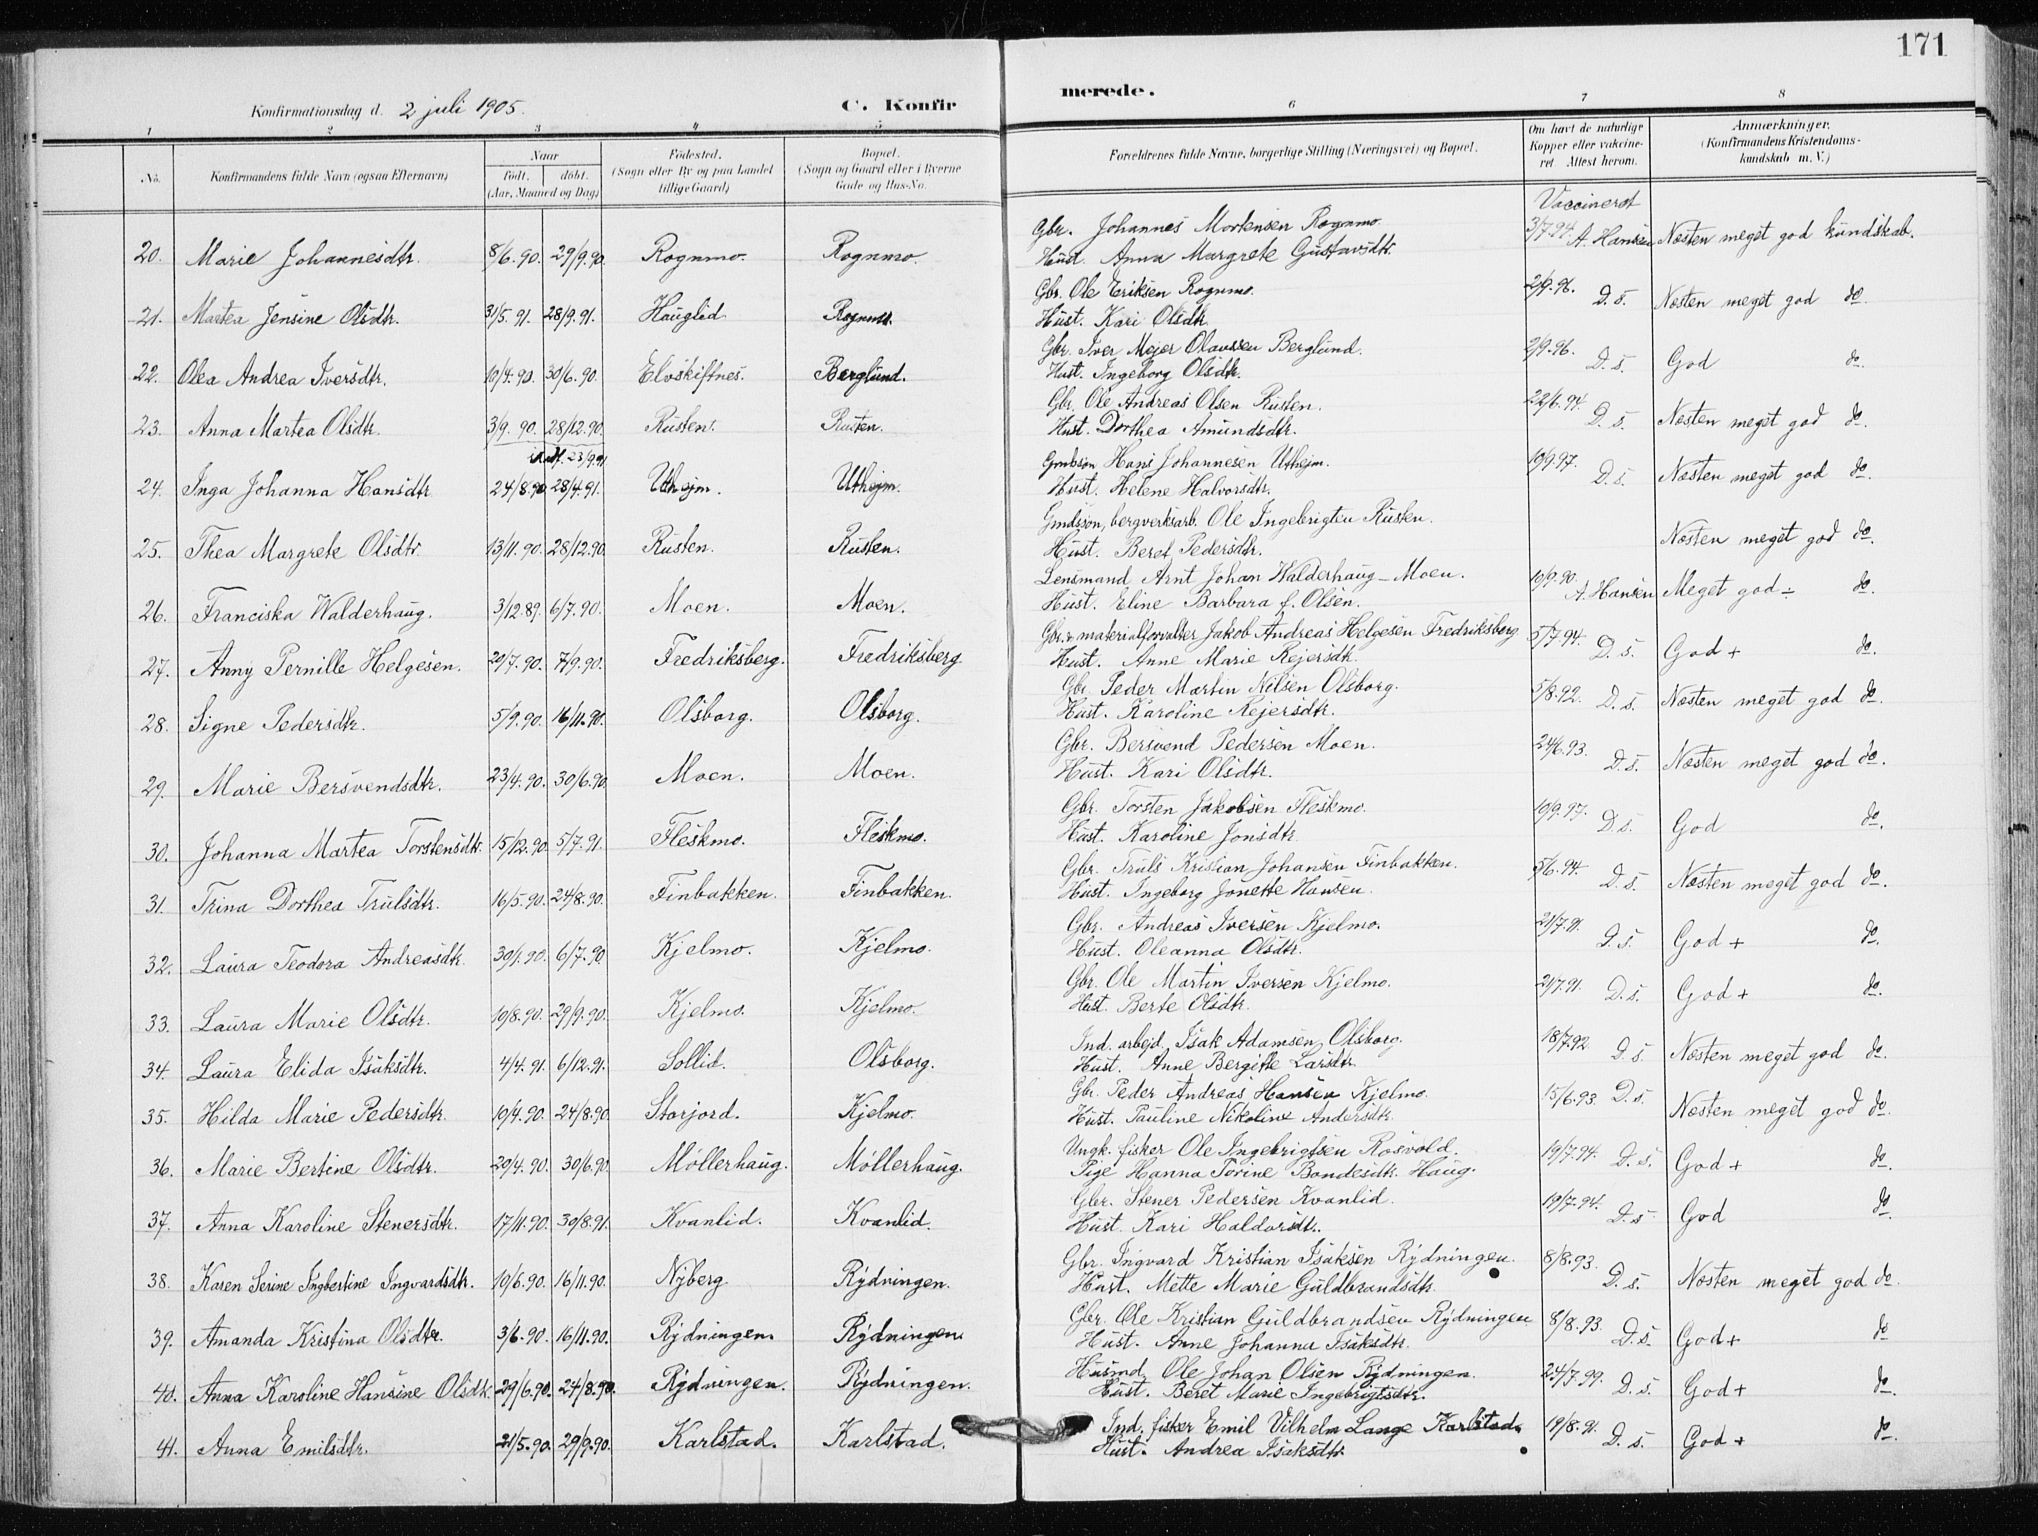 171
Konfirmationsdag d. 2 juli 1905.
C. Konfirmerede.
1 2 3 4 5 6 7 8
No.
Konfirmandens fulde Navn (ogsaa Efternavn)
Naar
født. døbt.
(Aar, Maaned og Dag)
Fødested.
(Sogn eller By og paa Landet
tillige Gaard)
Bopæl.
(Sogn og Gaard eller i Byerne
Gade og Hus-No.
Forældrenes fulde Navne, borgerlige Stilling (Næringsvei) og Bopæl.
Om havt de naturlige
Kopper eller vaccine-
ret. Attest herom.
Anmærkninger.
(Konfirmandens Kristendoms-
kundskab m. V.)
Vaccineret
20. Marie Johannesdtr. 8/6.90. 29/9.90. Rognmo. Rognmo. Gbr. Johannes Mortensen Rognmo. 3/7.94. A. Hansen Næsten meget god kundskab.
Hust. Anna Margrete Gustavsdtr.
21. Martea Jensine Olsdtr. 31/5.91. 28/9.91. Hauglid. Rognmo. Gbr. Ole Eriksen Rognmo. 2/9.96. D. s. Næsten meget god do.
Hust. Kari Olsdtr.
22. Olea Andrea Iversdtr. 10/4.90. 30/6.90. Elvskiftnes. Berglund. Gbr. Iver Mejer Olaussen Berglund. 2/9.96. D. s. God do.
Hust. Ingeborg Olsdtr.
23. Anna Martea Olsdtr. 3/9.90. 28/12.90. Rusten. Rusten. Gbr. Ole Andreas Olsen Rusten. 22/6.94. D. s. Næsten meget god do.
Hust. Dorthea Amundsdtr.
23/9.91
24. Inga Johanna Hansdtr. 24/8.90 28/4.91. Uthejm. Uthejm. Gmdssøn Hans Johannesen Uthejm. 10/9.97. D. s. Næsten meget god do.
Hust. Helene Halvorsdtr.
25. Thea Margrete Olsdtr. 13/11.90. 28/12.90. Rusten. Rusten. Gmdssøn, bergverksarb. Ole Ingebrigten Rusten. Næsten meget god do.
Hust. Beret Pedersdtr.
26. Franciska Walderhaug. 3/12.89. 6/7.90. Moen. Moen. Lensmand Arnt Johan Walderhaug - Moen. 10/9.90. A. Hansen Meget god ÷ do.
Hust. Eline Barbara f. Olsen.
27. Anny Pernille Helgesen. 29/7.90. 7/9.90. Fredriksberg. Fredriksberg. Gbr. & materialforvalter Jakob Andreas Helgesen Fredriksberg 5/7.94. D. s. God + do.
Hust. Anne Marie Rejersdtr.
28. Signe Pedersdtr. 5/9.90. 16/11.90. Olsborg. Olsborg. Gbr. Peder Martin Nilsen Olsborg. 5/8.92. D. s. Næsten meget god do.
Hust. Karoline Rejersdtr.
29. Marie Bersvendsdtr. 23/4.90. 30/6.90. Moen. Moen. Gbr. Bersvend Pedersen Moen. 24/6.93. D. s. Næsten meget god do.
Hust. Kari Olsdtr.
30. Johanna Martea Torstensdtr. 15/12.90. 5/7.91. Fleskmo. Fleskmo. Gbr. Torsten Jakobsen Fleskmo. 10/9.97. D. s. God do.
Hust. Karoline Jonsdtr.
31. Trina Dorthea Trulsdtr. 16/5.90. 24/8.90. Finbakken. Finbakken. Gbr. Truls Kristian Johansen Finbakken. 5/6.94. D. s. Næsten meget god do.
Hust. Ingeborg Jonette Hansen.
32. Laura Teodora Andreasdtr. 30/1.90. 6/7.90. Kjelmo. Kjelmo. Gbr. Andreas Iversen Kjelmo. 21/7.91. D. s. God + do.
Hust. Oleanna Olsdtr.
33. Laura Marie Olsdtr. 10/8.90. 29/9.90. Kjelmo. Kjelmo. Gbr. Ole Martin Iversen Kjelmo. 21/7.91. D. s. God + do.
Hust. Berte Olsdtr.
34. Laura Elida Isaksdtr. 4/4.91. 6/12.91. Sollid. Olsborg. Ind. arbejd. Isak Adamsen Olsborg. 18/7.92 D. s. Næsten meget god do.
Hust. Anne Bergitte Larsdtr.
35. Hilda Marie Pedersdtr. 10/4.90. 24/8.90. Storjord. Kjelmo. Gbr. Peder Andreas Hansen Kjelmo. 15/6.93 D. s. Næsten meget god do.
Hust. Pauline Nikoline Andersdtr.
36. Marie Bertine Olsdtr. 29/4.90. 30/6.90. Møllerhaug. Møllerhaug. Ungk. fisker Ole Ingebrigtsen Rosvold. 19/7.94. D. s. God + do.
Pige Hanna Torine Bondesdtr. Haug.
37. Anna Karoline Stenersdtr. 17/11.90. 30/8.91. Kvanlid. Kvanlid. Gbr. Stener Pedersen Kvanlid. 19/7.94. D. s. God do.
Hust. Kari Haldorsdtr.
38. Karen Serine Ingbertine Ingvardsdtr. 10/6.90. 16/11.90. Nyberg Rydningen. Gbr. Ingvard Kristian Isaksen Rydningen. 8/8.93. D. s. Næsten meget god do.
Hust. Mette Marie Guldbrandsdtr.
39. Amanda Kristina Olsdtr. 3/6.90. 16/11.90. Rydningen. Rydningen. Gbr. Ole Kristian Guldbrandsen Rydningen 8/8.93. D. s. God + do
Hust. Anne Johanna Isaksdtr.
40. Anna Karoline Hansine Olsdtr. 29/6.90. 24/8.90. Rydningen. Rydningen. Husmd. Ole Johan Olsen Rydningen. 24/7.99. D. s. God + do.
Hust. Beret Marie Ingebrigtsdtr.
41. Anna Emilsdtr. 21/5.90. 29/9.90. Karlstad. Karlstad. Ind. fisker Emil Vilhelm Lange Karlstad. 19/8.91. D. s. God + do.
Hust. Andrea Isaksdtr.